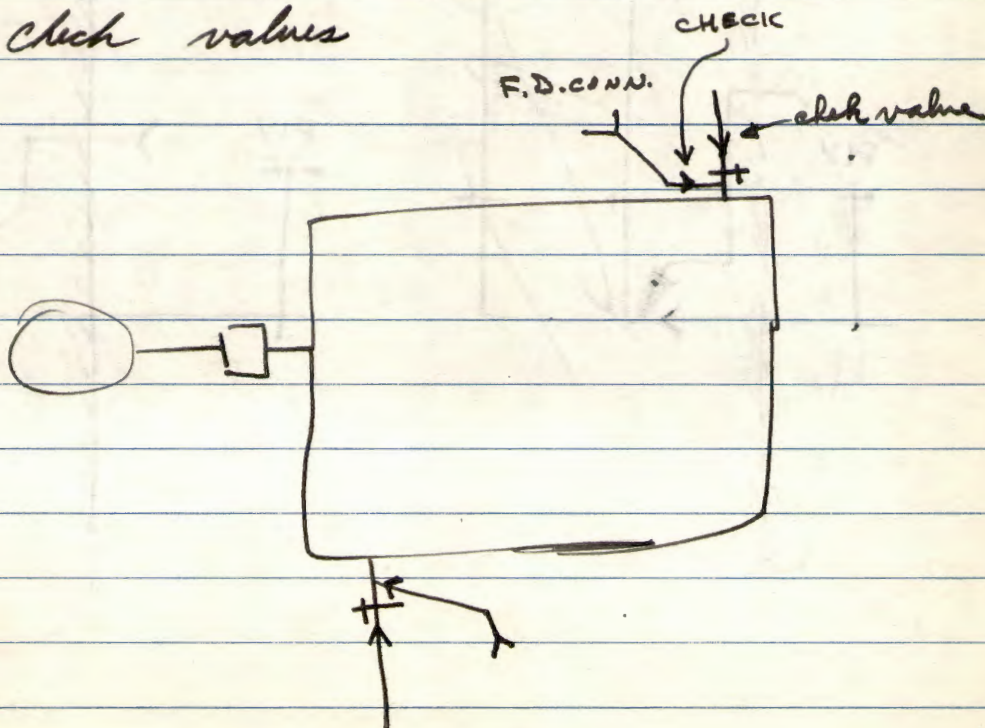 check valves
CHECK
F.D. CONN.
check valve